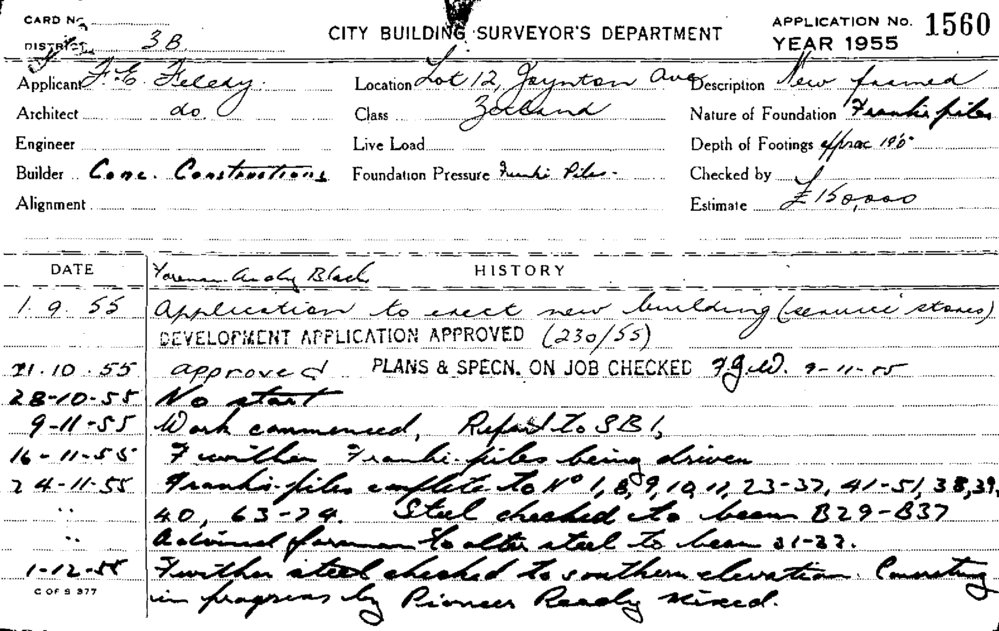 CARD No. CITY BUILDING SURVEYOR'S DEPARTMENT APPLICATION No. 1560
DISTRICT 3B. YEAR 1955
Applicant F. E. Location Lot 12, Joynton Ave Description New framed
Architect do. Class Zetland Nature of Foundation Franki piles
Engineer Live Load Depth of Footings approx 19'0"
Builder Conc. Constructions Foundation Pressure Franki Piles. Checked by
Alignment Estimate £150,000
DATE Foreman Andy Black HISTORY
1.9.55 Application to erect new building (service stores)
DEVELOPMENT APPLICATION APPROVED (230/55)
21.10.55 approved PLANS & SPECN. ON JOB CHECKED F.J.W. 9-11-55
28-10-55 No start
9-11-55 Work commenced, Report to SB1,
16-11-55 Further Franki-piles being driven
24-11-55 Franki-piles complete to No 1, 8, 9, 10, 11, 23-37, 41-51, 38, 39,
" 40, 63-74. Steel checked to beam B29-B37
" Advised foreman to alter steel to beam 31-32.
1-12-55 Further steel checked to southern elevation. Concreting
C OF S 377 in progress by Pioneer Ready Mixed.